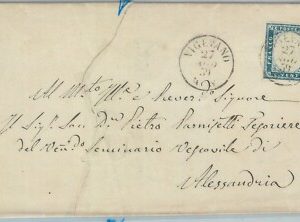 VIGEVANO
27
59
Al M.to Ill.e e Rever.o Signore
Il Sig.r Sac. D.n Pietro Parnisetti Tesoriere
del Ven.do Seminario Vescovile di
Alessandria